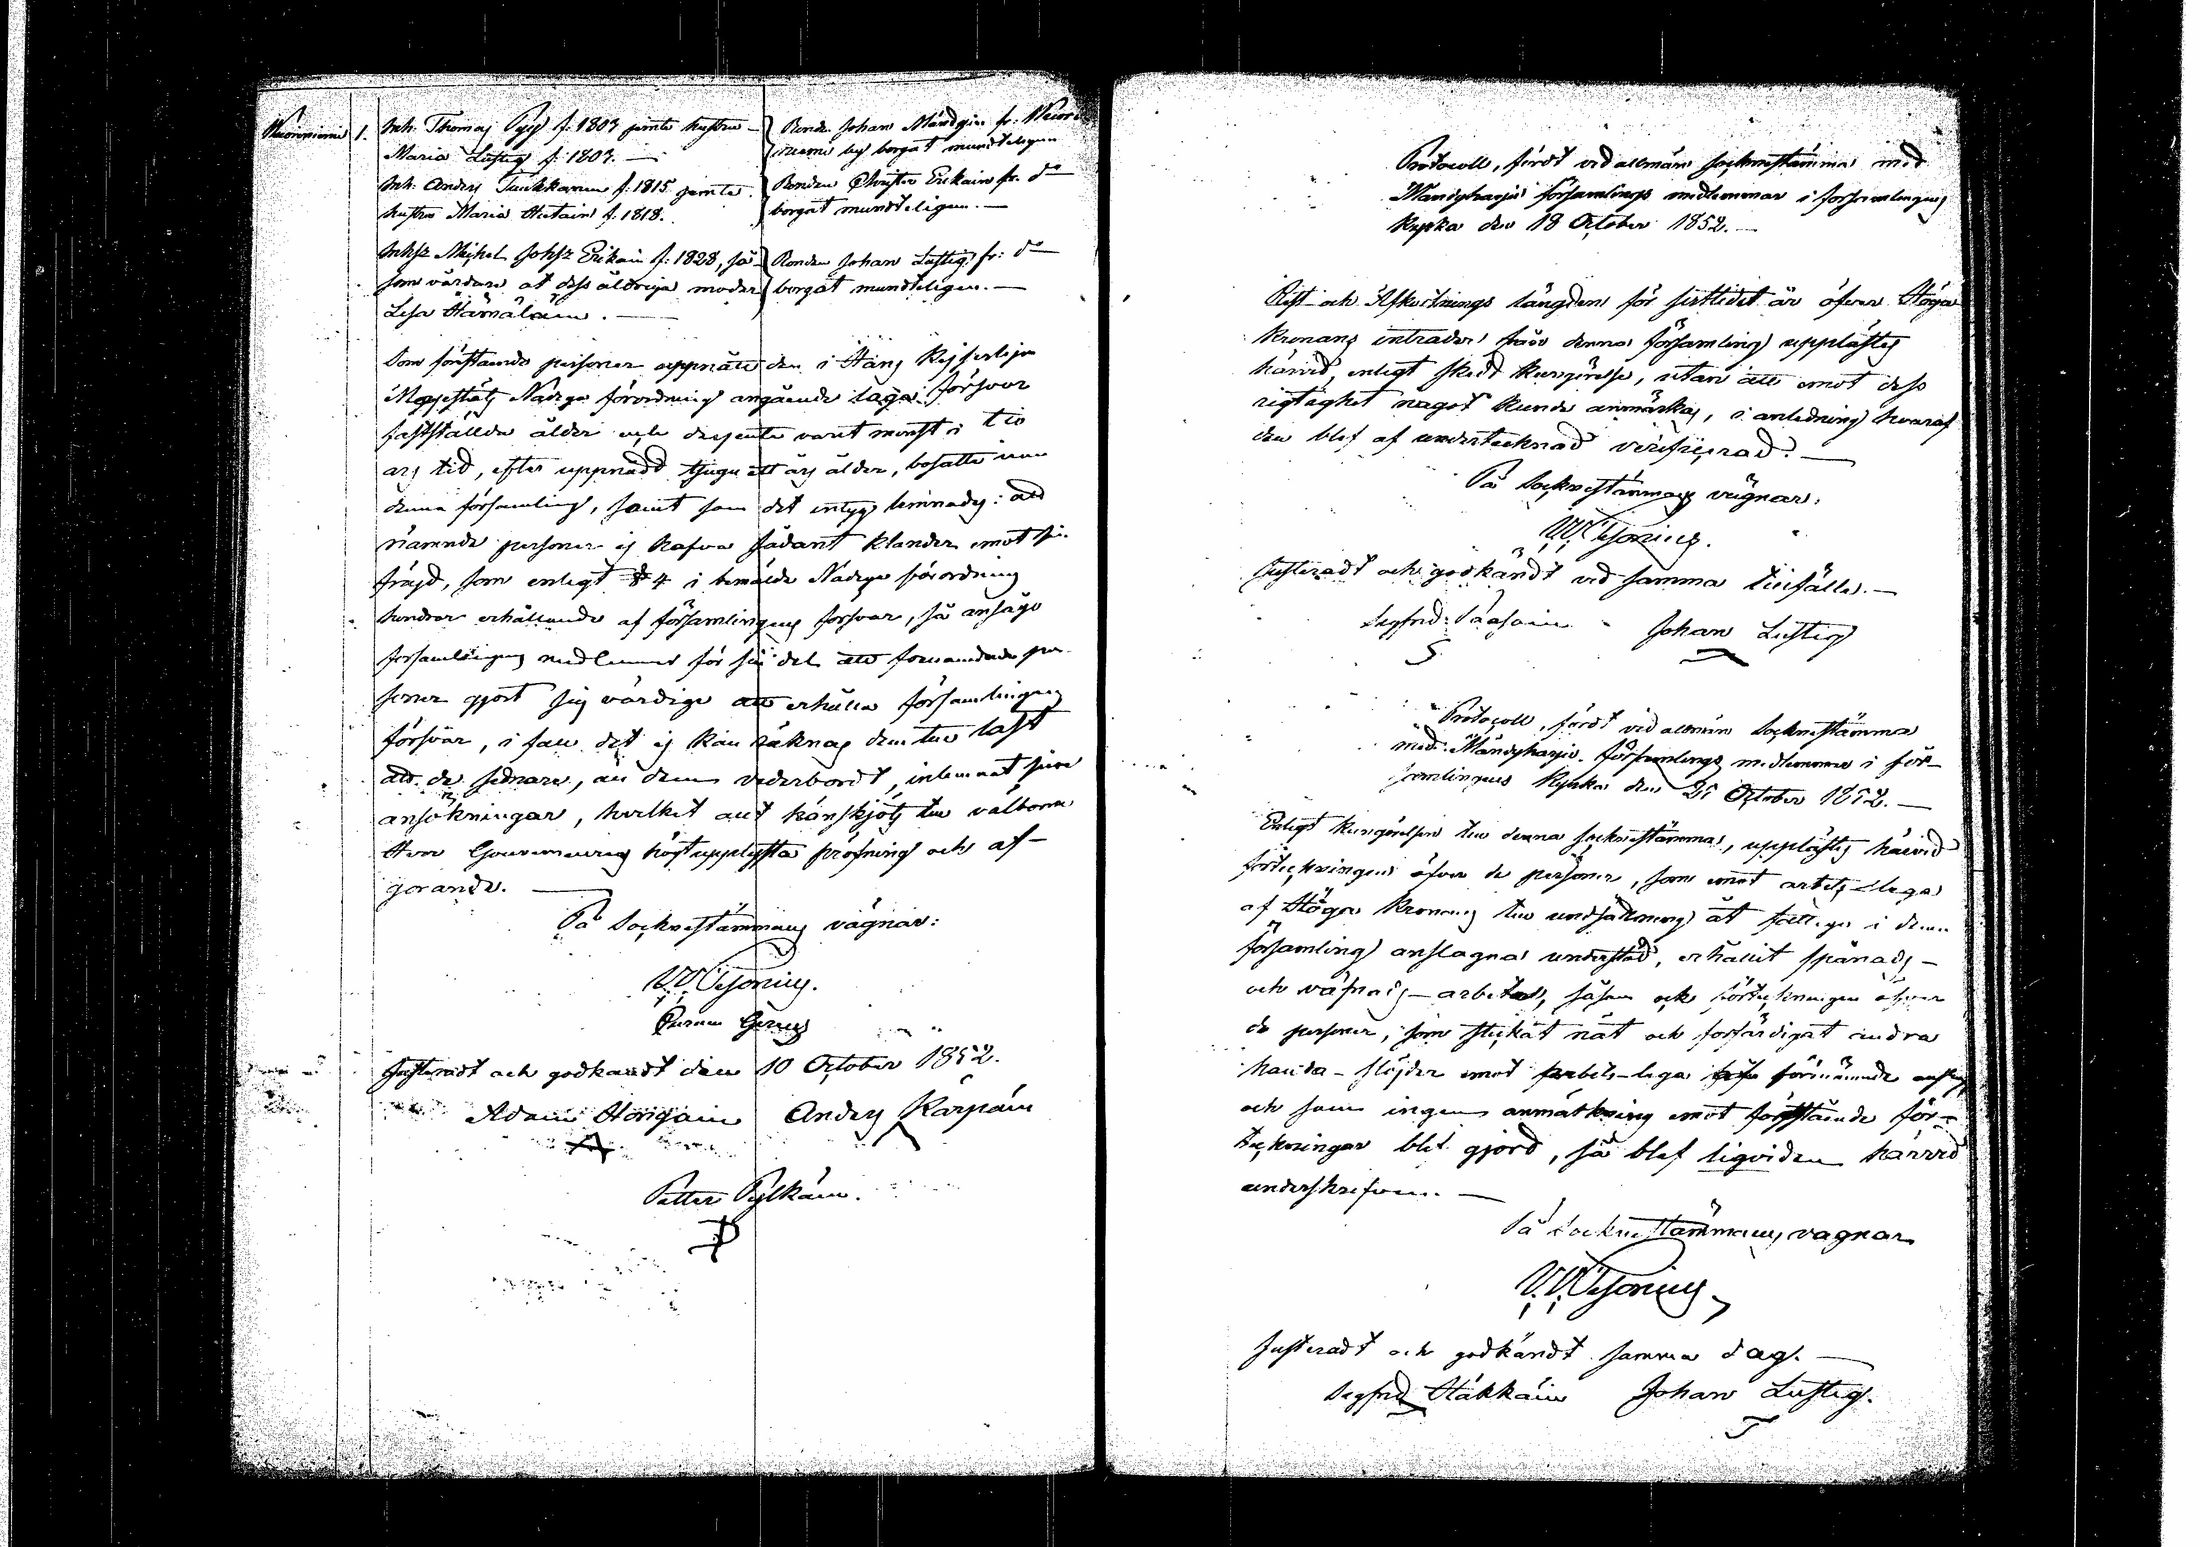 1. Inh. Thomas f. 1803 jemte hustru
Maria Lustig f. 1807. —
Inh. Anders Taukkanen f. 1815 jemte
hustru Maria f. 1818.
Inhsz Michel Johsz Erikain f. 1828, så-
som vårdare åt dess åldriga moder
Lisa Hämäläin. —
Bonden Johan Mändyin fr.
by borgat mundteligen
Bonden Christer Erikain fr. do
borgat mundteligen. —
Bonden Johan Lustig fr: do
borgat mundteligen. —
Som förestående personer uppnått den i Hans Kejserliga
Majestäts Nådiga förordning angående laga försvar
fastställda ålder och desse varit minst i tio
års tid, efter uppnådd tjugu ett års ålder, bosatte inom
denna församling, samt som det intyg lemnades: att
nämnde personer ej hafva sådant klander emot sin
fräjd, som enligt § 4 i bemälde Nådiga förordning
hindrar erhållande af församlingens försvar, så ansågo
församlingens medlemmar för sin del att förenämnde per-
soner gjort sig värdige att erhålla församlingens
försvar, i fall det ej kan räknas dem till last
att de sednare, än dem vederbordt, inlemnat sine
ansökningar, hvilket allt hänskjöts till välborne
Herr Gouverneurens högtupplysta pröfning och af-
görande. —
På Socknestämmans vägnar:
W. Cesonius.
Justeradt och godkändt den 10 October 1852.
Adam Hongain Anders Kärpäin
Petter Pylkäin.
P
Protocoll, fördt vid allmän socknestämma med
Mändyharju församlings medlemmar i församlingens
kyrka den 18 October 1852. —
Rest- och Afkortnings längden för sistlidet år öfver Höga
Kronans intrader från denna församling upplästes
härvid, enligt skedd kungörelse, utan att emot dess
rigtighet något kunde anmärkas, i anledning hvaraf
den blef af undertecknad verifierad. —
På Sockneståmmans vägnar:
W. Cesonius.
Justeradt och godkändt vid samma tillfälle. —
Segfrid Pååsoin Johan Lustig
S
Protocoll, fördt vid allmän Sockneståmma
med Mändyharju församlings medlemmar i för-
samlingens Kyrka den 25 October 1852. —
Enligt kungörelsen till denna sockneståmma, upplästes härvid
förteckningen öfver de personer, som emot arbets-lega
af Höga Kronans till undsättning åt fattige i denna
församling anslagna understöd, erhållit spånads-
och väfnads-arbeten, såsom ock förteckningen öfver
de personer, som stickat nät och förfärdigat andra
handa-slöjder emot arbets-lega förnämnde
och som ingen anmärkning emot förestående för-
teckningar blef gjord, så blef liqviden härvid
underskrifven. —
På Sockneståmmans vägnar
W. Cesonius
Justeradt och godkändt samma dag. —
Segfrid Häkkäin Johan Lustig.